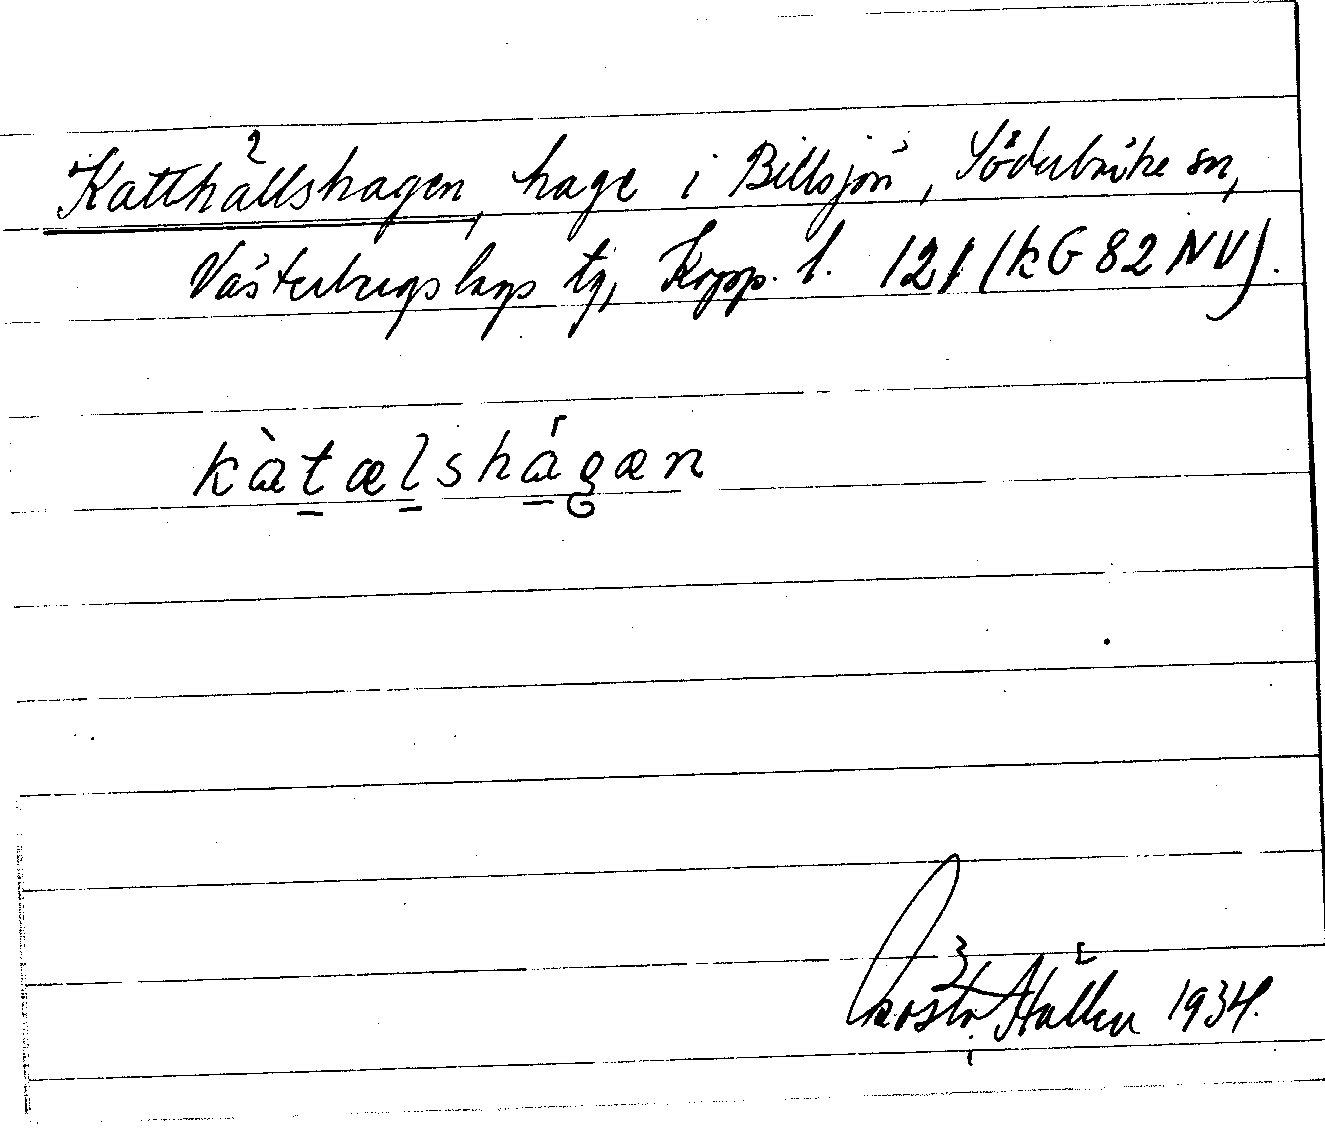 Katthållshagen, hage i Billsjön, Söderbärke sn,
Västerbergslags tg, Kopp. l. 121 (kG 82 NV).
kàtælshágæn
Hållen 1934.